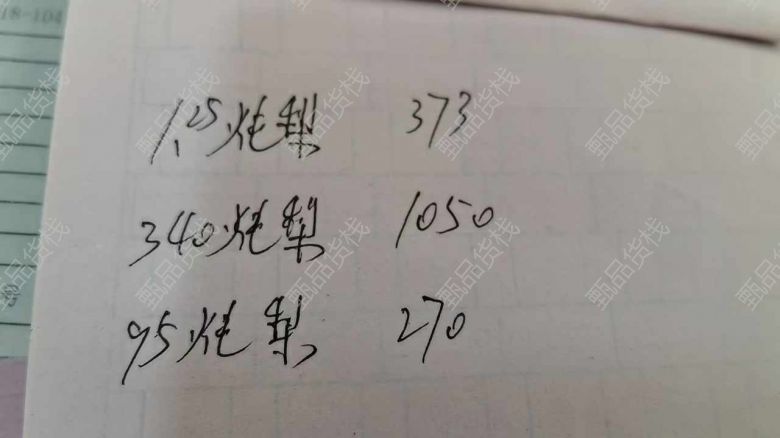 18-104
1.25炖梨 373
340炖梨 1050
95炖梨 270
甄品货栈
甄品货栈
甄品货栈
甄品货栈
甄品货栈
甄品货栈
甄品货栈
甄品货栈
甄品货栈
甄品货栈
甄品货栈
甄品货栈